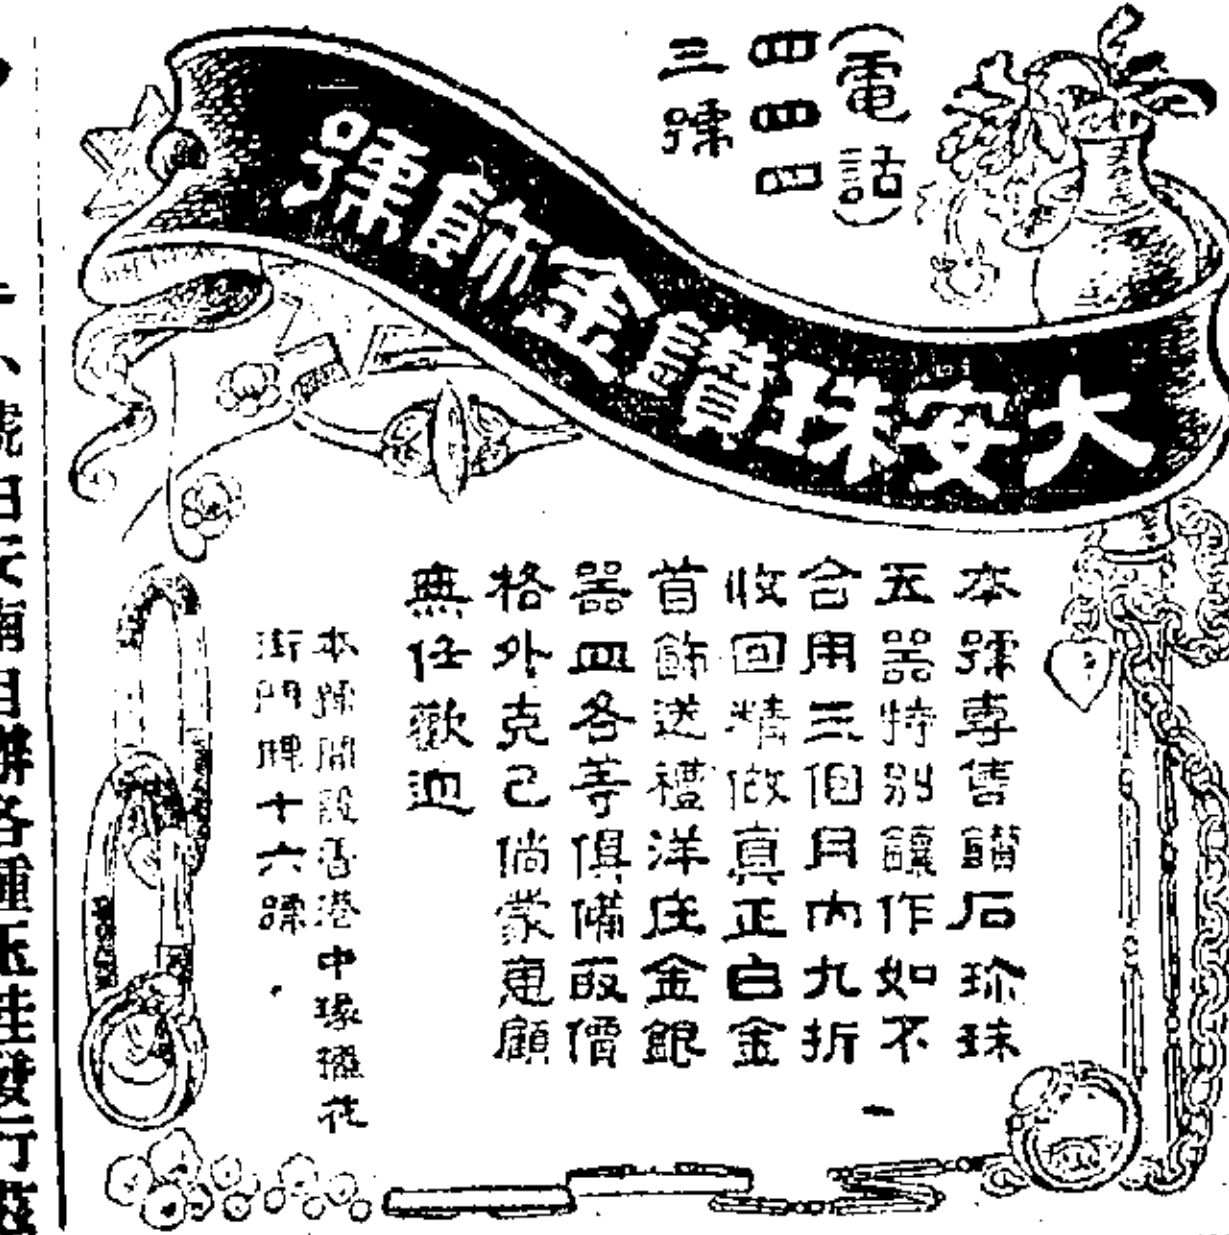 (電話)
四四四
三號
大安珠鑽金飾號
本號專售鑽石珍珠
五器特別鑲作如不
合用三個月內九折
收回精做真正白金
首飾送禮洋庄金銀
器皿各等俱備取價
格外克己倘蒙惠顧
無任歡迎
本號開設香港中環擺花
街門牌十六號